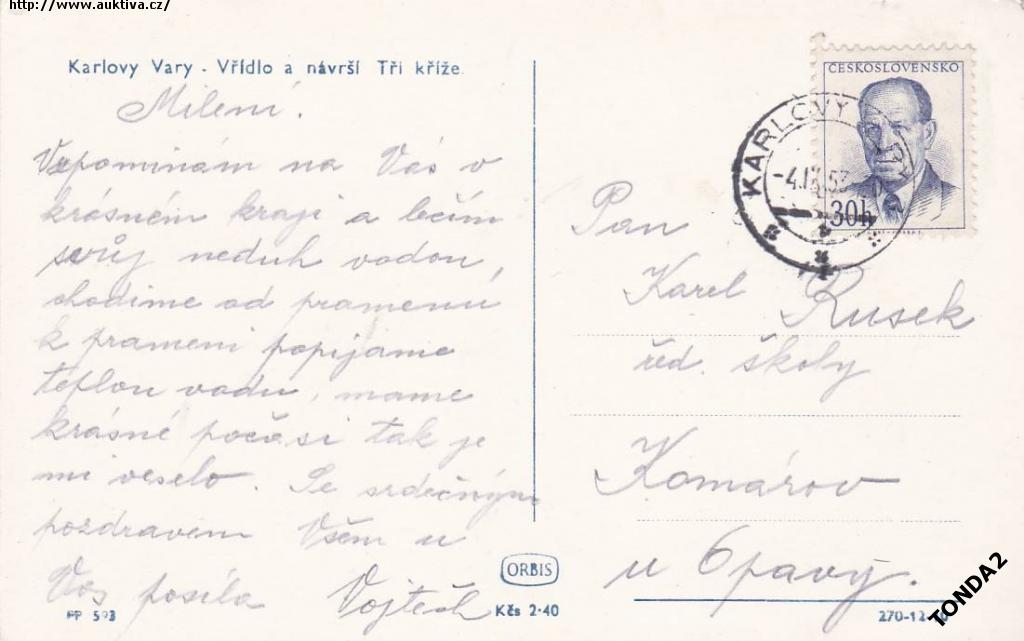 http://www.auktiva.cz/
Karlovy Vary - Vřídlo a návrší Tři kříže
Milení.
Vzpomínám na Vás v
krásném kraji a léčím
svůj neduh vodou,
chodíme od pramenu
k prameni popijame
teplou vodu, mame
krásné počasi tak je
mi veselo. Se srdečným
pozdravem Všem u
Vás posíla Vojtěch
PP 593
ORBIS
Kčs 2·40
ČESKOSLOVENSKO
30h
KARLOVY VARY
Pan
Karel Rusek
řed. školy
Komárov
u Opavy.
270-12
TONDA2